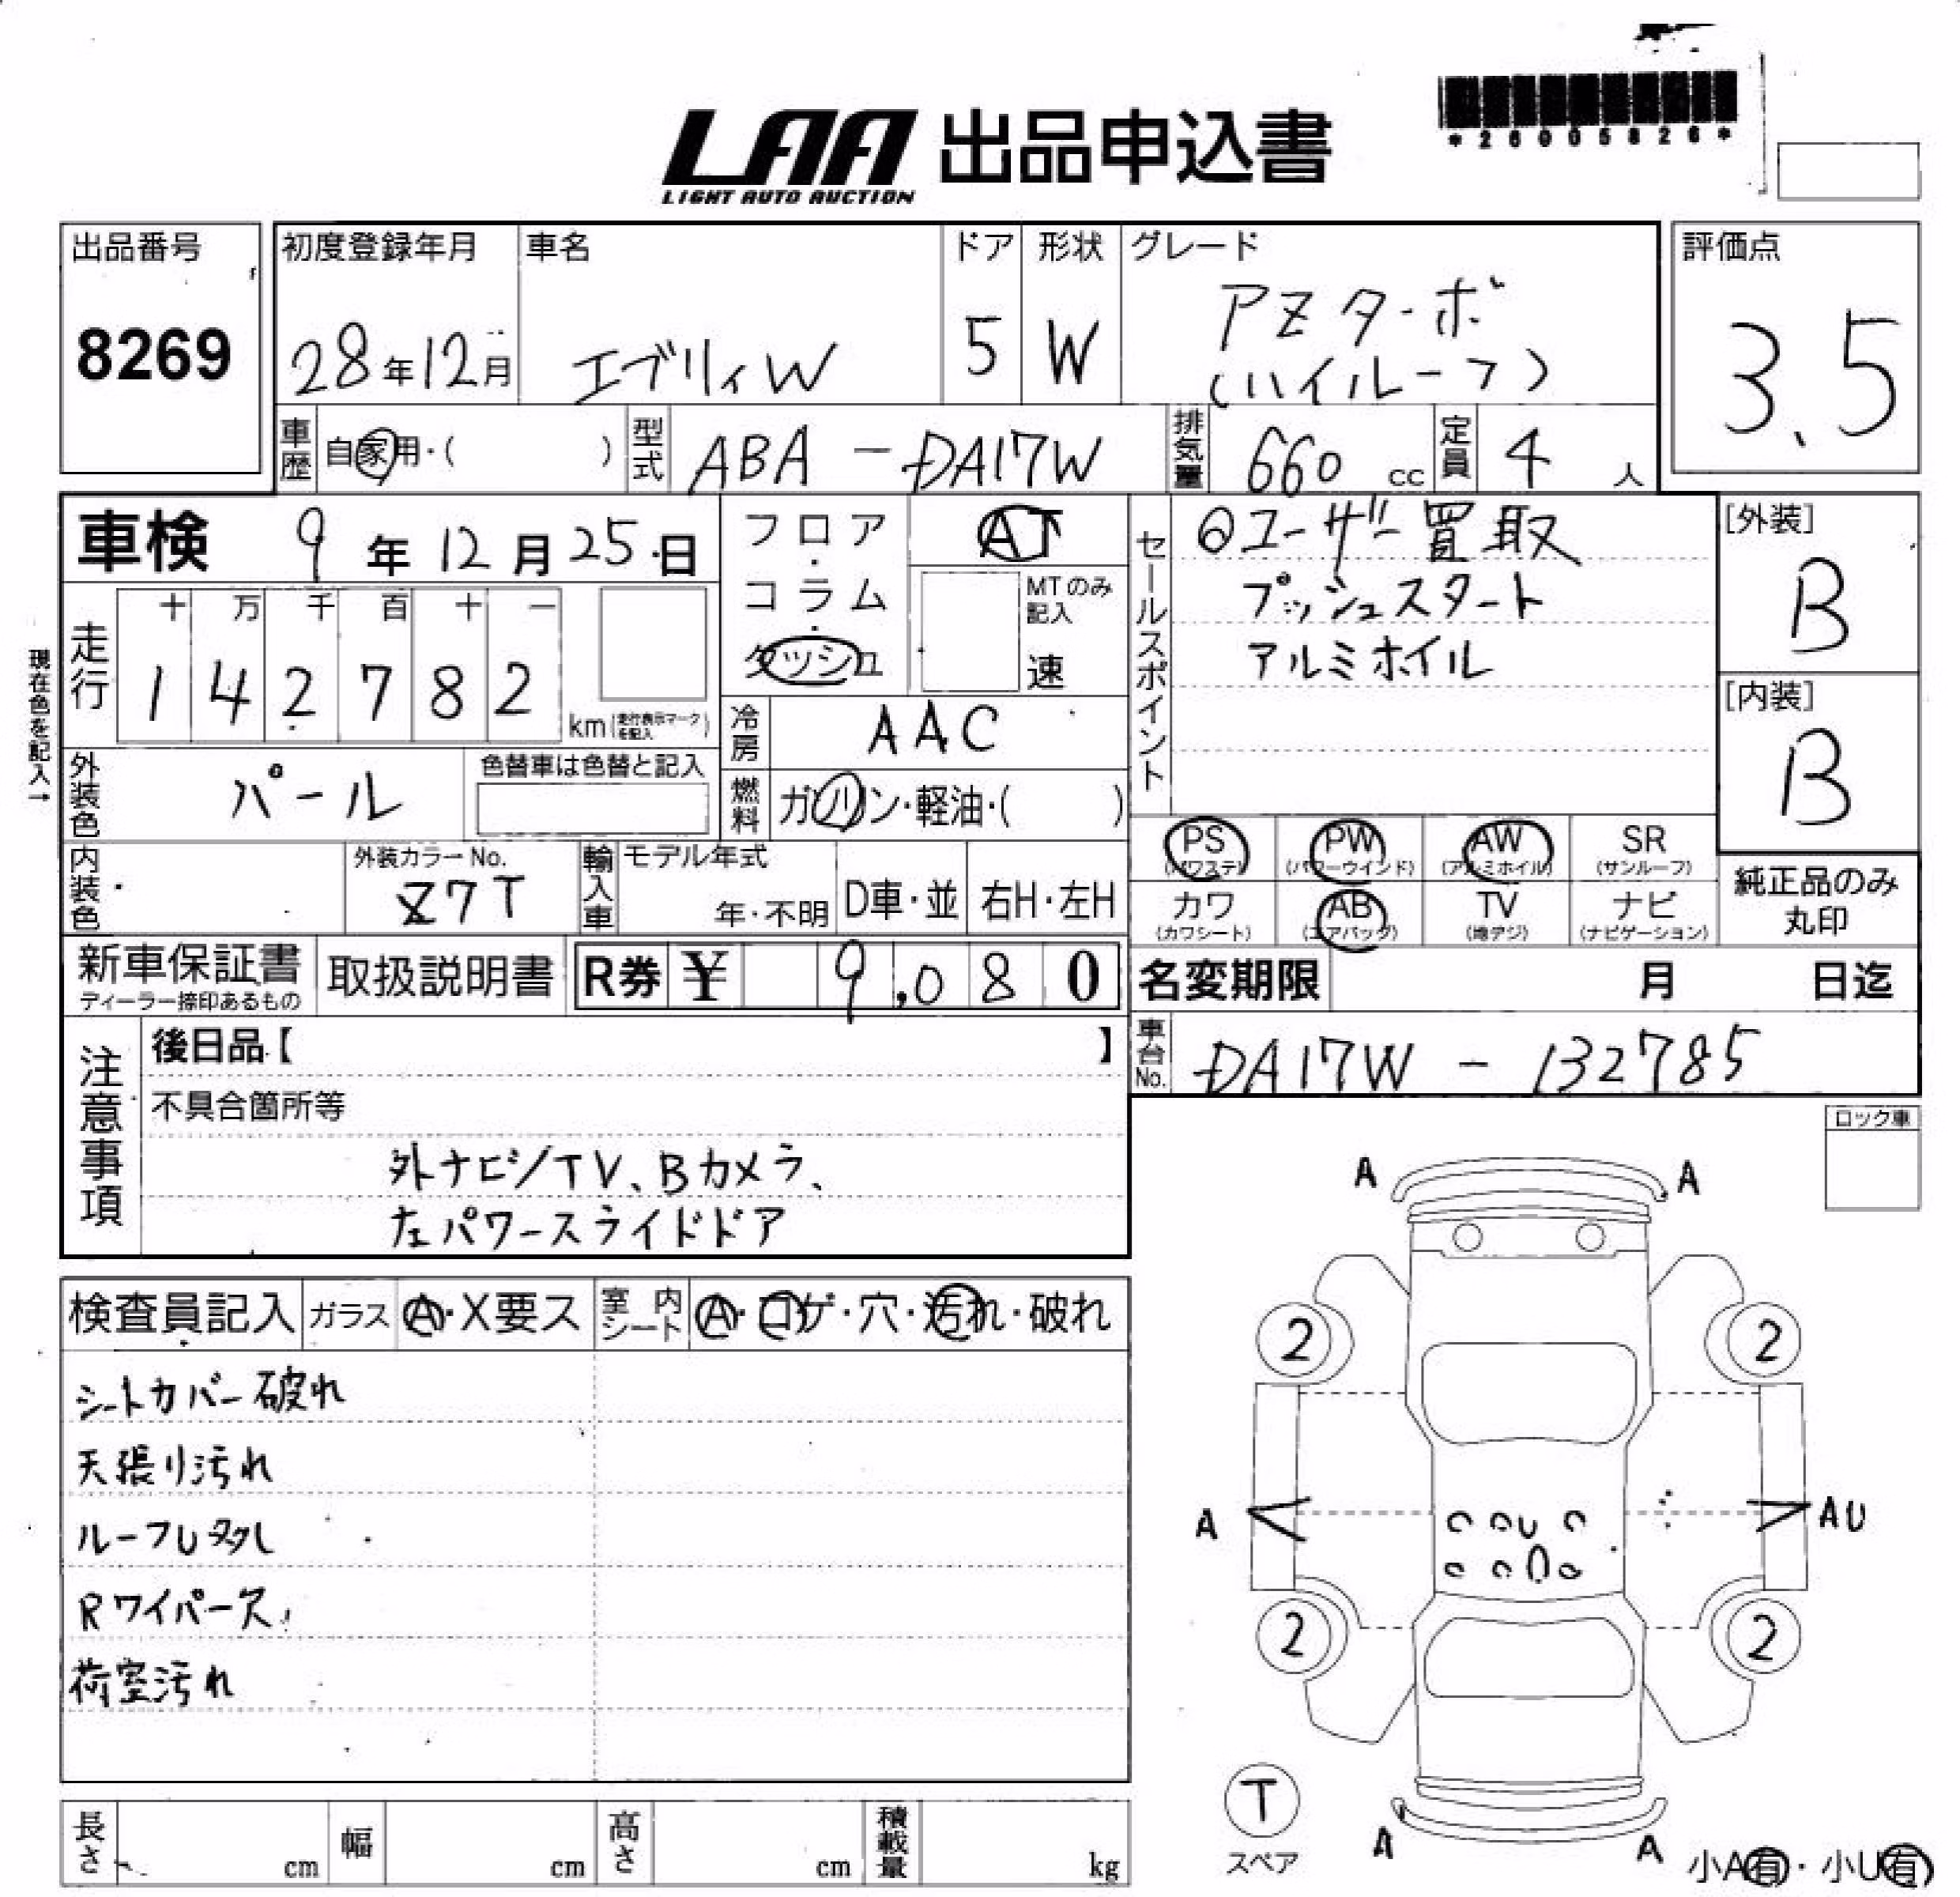 *26005826*
LAA 出品申込書
LIGHT AUTO AUCTION
出品番号
8269
初度登録年月
28年12月
車名
エブリィW
ドア
5
形状
W
グレード
PZターボ
(ハイルーフ)
評価点
3.5
車歴
自家用・( )
型式
ABA-DA17W
排気量
660 cc
定員
4 人
車検 9年12月25日
フロア・コラム・ダッシュ
AT
MTのみ記入
速
セールスポイント
◎ユーザー買取
プッシュスタート
アルミホイル
[外装]
B
[内装]
B
現在色を記入→
走行
十 万 千 百 十 一
1 4 2 7 8 2
km(走行表示マークを記入)
冷房
AAC
外装色
パール
色替車は色替と記入
燃料
ガソリン・軽油・( )
PS
(パワステ)
PW
(パワーウインド)
AW
(アルミホイル)
SR
(サンルーフ)
カワ
(カワシート)
AB
(エアバッグ)
TV
(地デジ)
ナビ
(ナビゲーション)
純正品のみ
丸印
内装色
外装カラーNo.
Z7T
輸入車
モデル年式
年・不明
D車・並
右H・左H
新車保証書
ディーラー捺印あるもの
取扱説明書
R券 ¥ 9,080
名変期限 月 日迄
車台No.
DA17W - 132785
注意事項
後日品【 】
不具合箇所等
外ナビ/TV、Bカメラ、
左パワースライドドア
ロック車
検査員記入
ガラス
A・X要ス
室内シート
A・コゲ・穴・汚れ・破れ
シートカバー破れ
天張り汚れ
ルーフU多し
Rワイパー欠
荷室汚れ
A A
2 2
A AU
2 2
T
スペア
A A
小A有・小U有
長さ cm
幅 cm
高さ cm
積載量 kg